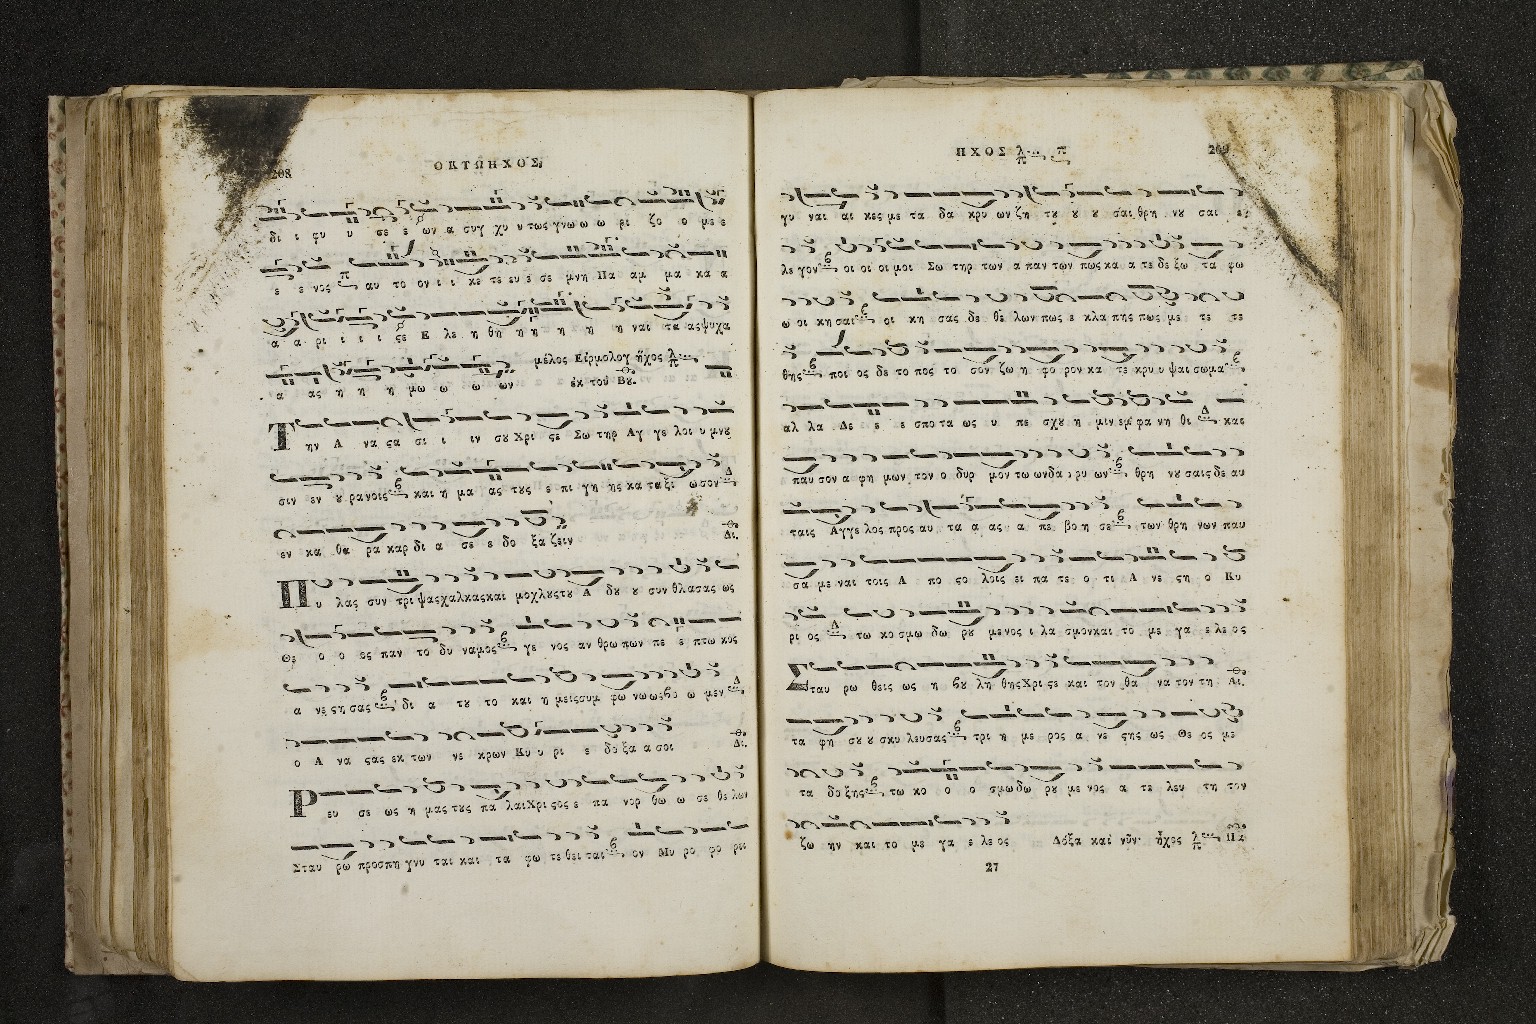 208
ΟΚΤΩΗΧΟΣ
δι ι ψυ υ σε ε ων α συγ χυ υ τως γνω ω ω ρι ζο ο με ε
ε ε νος αυ το ον ι ι κε τε ευ ε σε μνη Πα αμ μα κα α
α α ρι ι ι ι ϛε Ε λε η θη η η η η η ναι τα ας ψυχα
α ας η η η μω ω ω ων μέλος Εἱρμολογ ἦχος
ἐκ τοῦ Βου.
Την Α να ϛα σι ι ιν σου Χρι ϛε Σω τηρ Αγ γε λοι υ μνου
σιν εν ου ρα νοις και η μα ας τους ε πι γη ης κα τα ξι ω σον
εν κα θα ρα καρ δι α σε ε δο ξα ζειν
Δι.
Πυ λας συν τρι ψας χαλκας και μοχλους του Α δου ου συν θλασας ως
Θε ο ο ος παν το δυ ναμος γε νος αν θρω πων πε ε πτω κος
α νε ϛη σας δι α του το και η μεις συμ φω νως βο ω μεν
ο Α να ϛας εκ των νε κρων Κυ υ ρι ε δο ξα α σοι
Δι.
Ρευ σε ως η μας τους πα λαι Χρι ϛος ε πα νορ θω ω σε θε λων
Σταυ ρω προσπη γνυ ται και τα φω τε θει ται ον Μυ ρο φο ροι
ΗΧΟΣ
209
γυ ναι αι κες με τα δα κρυ ων ζη του ου ου σαι θρη νου σαι ε
λε γον οι οι οι μοι Σω τηρ των α παν των πως κα α τε δε ξω τα φω
ω οι κη σαι οι κη σας δε θε λων πως ε κλα πης πως με τε τε
θης ποι ος δε το πος το σον ζω η φο ρον κα τε κρυ υ ψαι σωμα
αλ λα Δε ε ε σπο τα ως υ πε σχου η μιν εμ φα νη θι και
παυ σον α φη μων τον ο δυρ μον τω ων δα κρυ ων θρη νου σαις δε αυ
ταις Αγγε λος προς αυ τα α ας α πε βο η σε των θρη νων παυ
σα με ναι τοις Α πο ϛο λοις ει πα τε ο τι Α νε ϛη ο Κυ
ρι ος τω κο σμω δω ρου με νος ι λα σμον και το με γα ε λε ος
Σταυ ρω θεις ως η βου λη θης Χρι ϛε και τον θα να τον τη
Δι.
τα φη σου ου σκυ λευ σας τρι η με ρος α νε ϛης ως Θε ος με
τα δο ξης τω κο ο ο σμω δω ρου με νος α τε λευ τη τον
ζω ην και το με γα ε λε ος Δόξα καὶ νῦν· ἦχος Πα
27